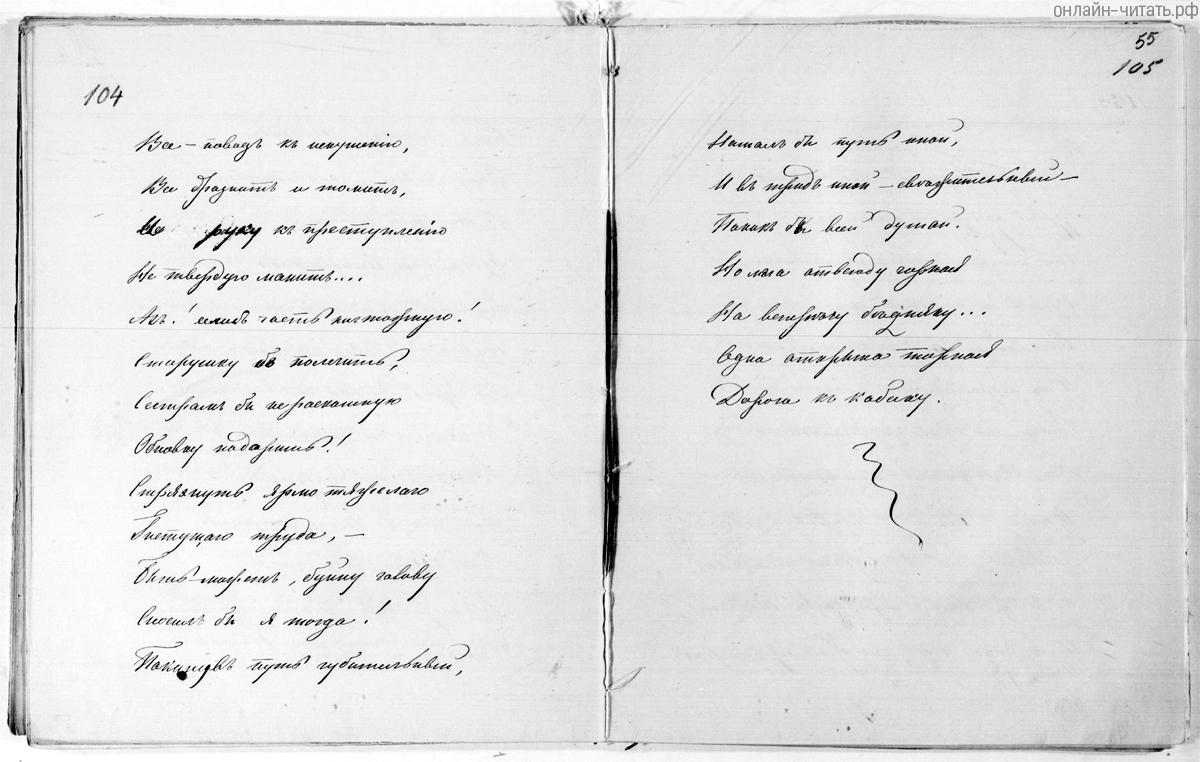 онлайн-читать.рф
104
Все – поводъ къ искушенію,
Все дразнитъ и томитъ,
руку къ преступленію
Не твердую манитъ....
Ахъ! еслибъ часть ничтожную!
Старушку бъ полечить,
Сестрамъ бы не роскошную
Обновку подарить!
Стряхнуть ярмо тяжелаго
Гнетущаго труда, –
Быть-можетъ, буйну голову
Сносилъ бы я тогда!
Покинувъ путь губительный,
55
105
Нашелъ бы путь иной,
И въ трудъ иной – свѣжительный –
Поникъ бы всей душой.
Но мгла отвсюду горная
На встрѣчу бѣдняку...
Одна открыта торная
Дорога къ кабаку.